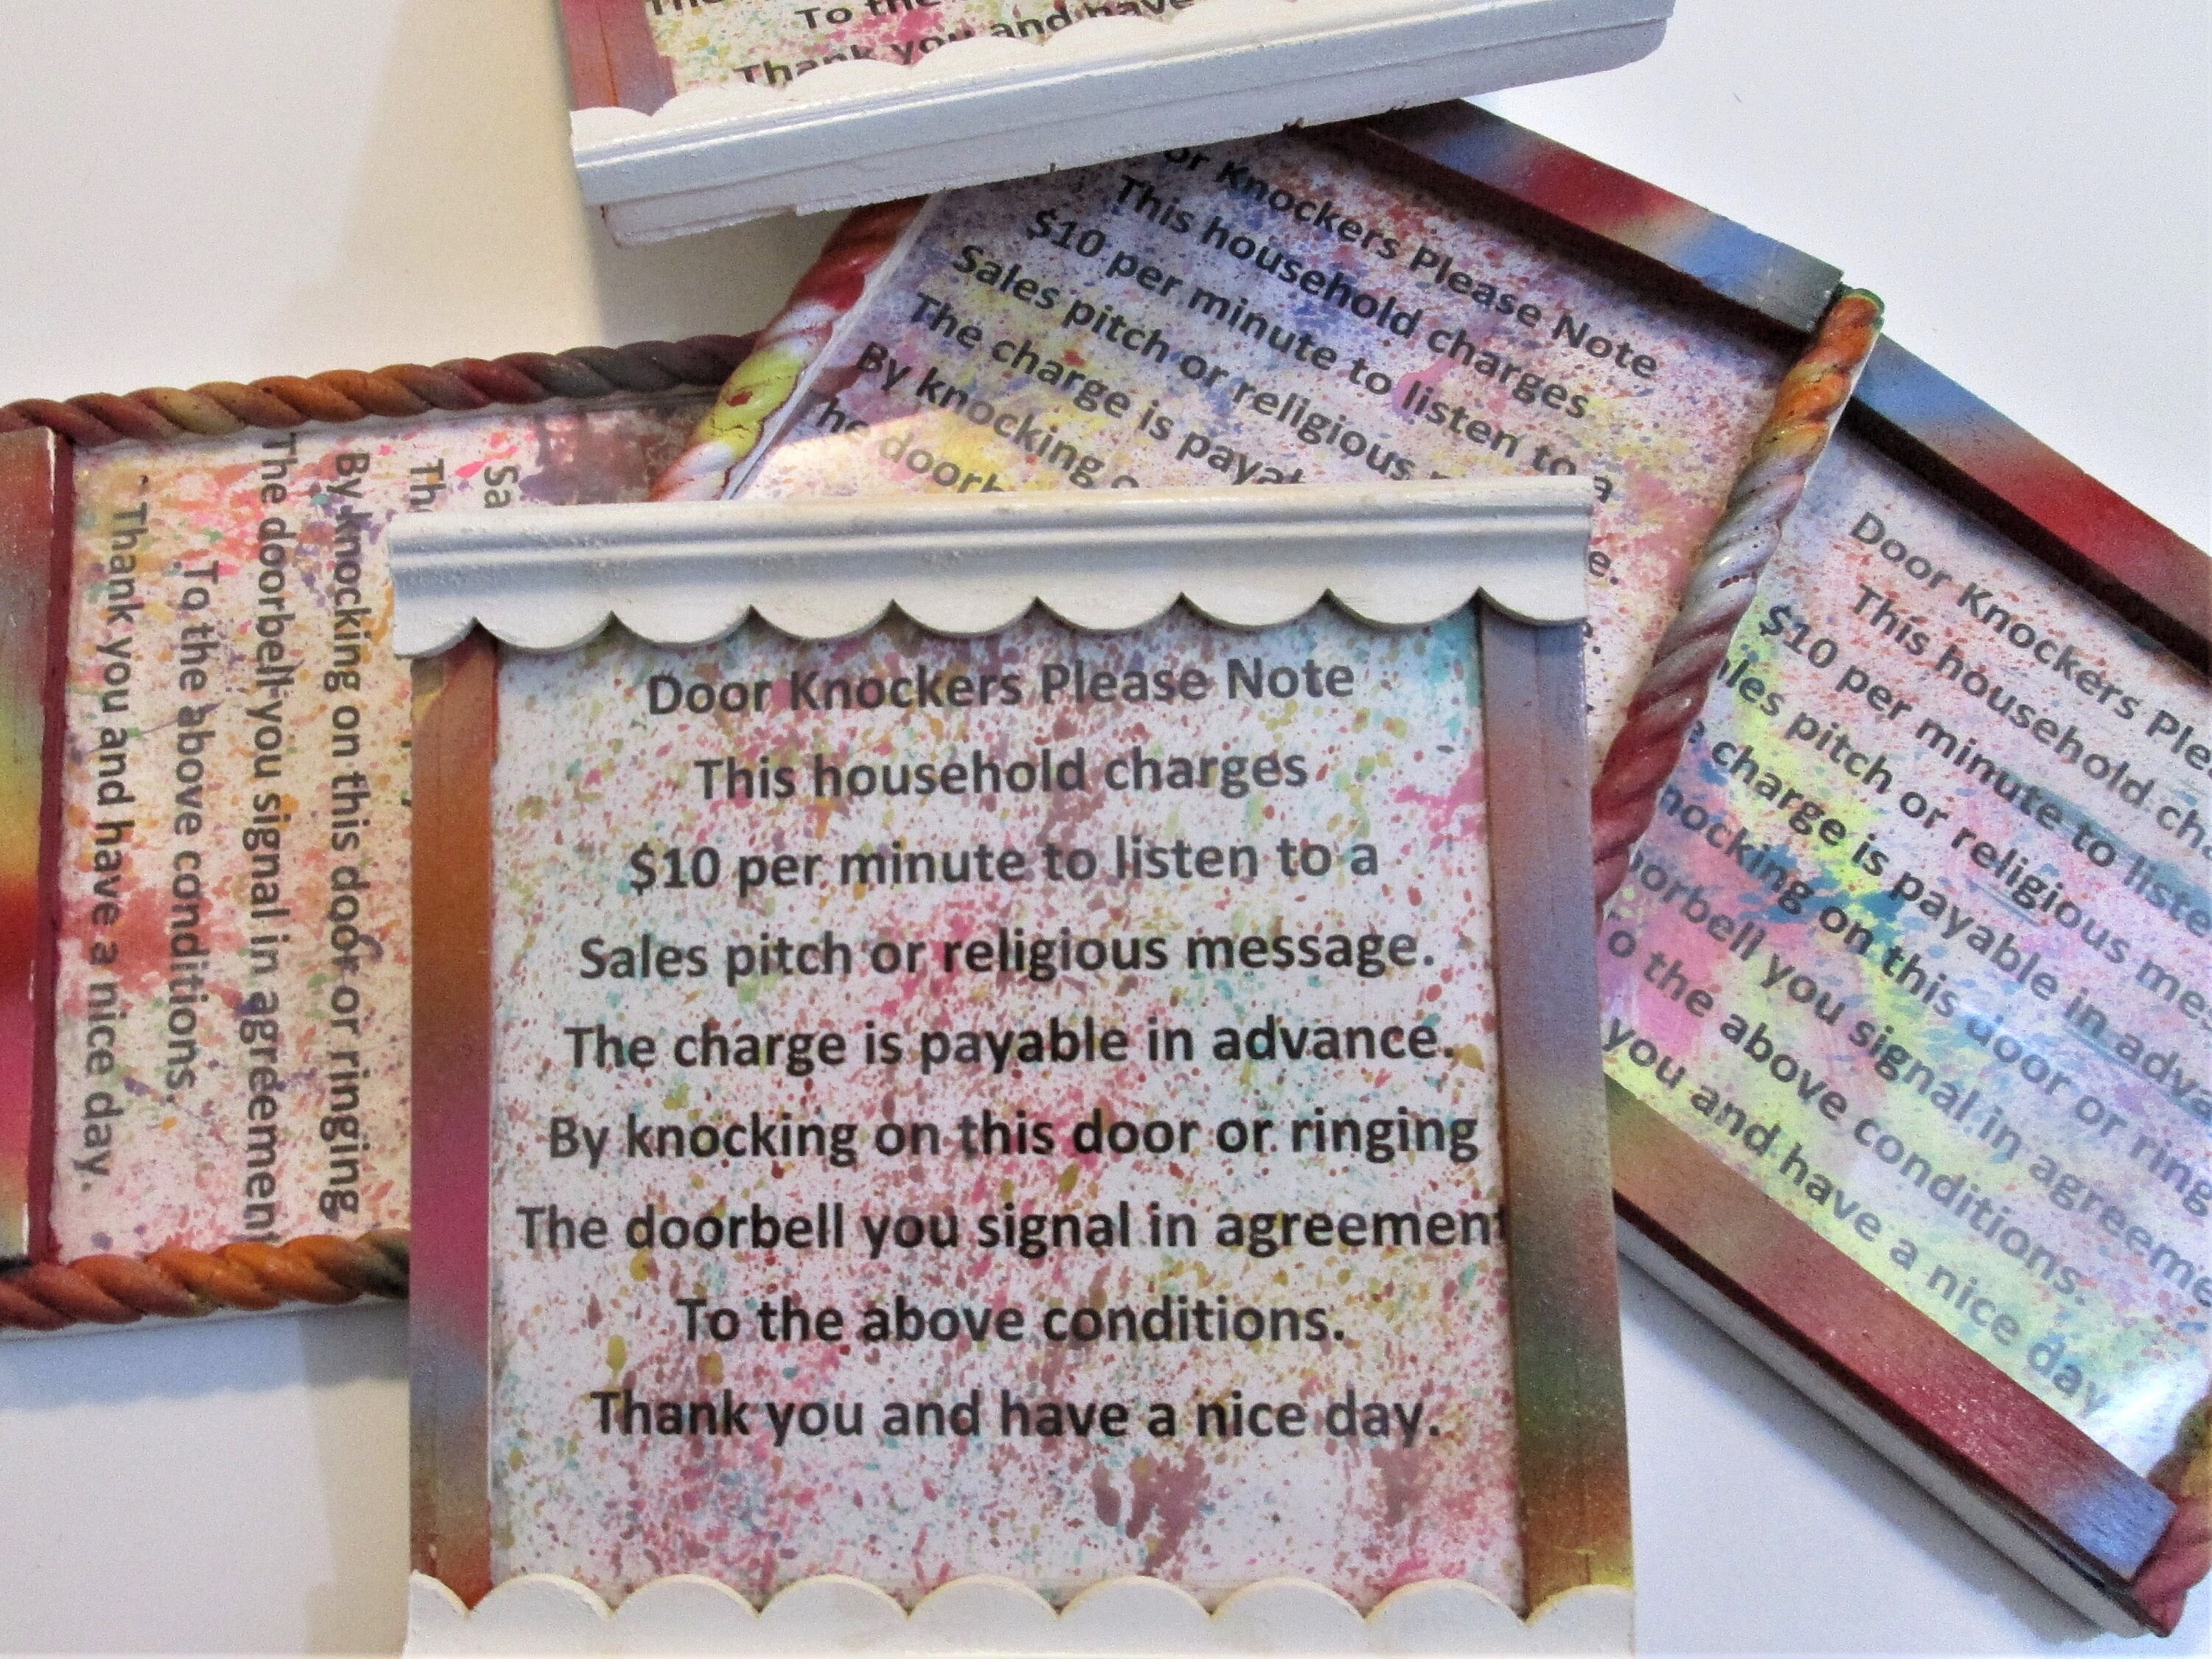 The
To the
Thank you and have
or Knockers Please Note
This household charges
$10 per minute to listen to a
Sales pitch or religious
The charge is
By knocking
The
e.
Sa
Th
By knocking on this door or ringing
The doorbell you signal in agreement
To the above conditions.
Thank you and have a nice day.
Door Knockers Please Note
This household charges
$10 per minute to listen to a
Sales pitch or religious message.
The charge is payable in advance.
By knocking on this door or ringing
The doorbell you signal in agreement
To the above conditions.
Thank you and have a nice day.
Door Knockers Plea
This household cha
$10 per minute to listen
ales pitch or religious mes
e charge is payable in advan
nocking on this door or ringi
oorbell you signal in agreeme
o the above conditions.
you and have a nice day